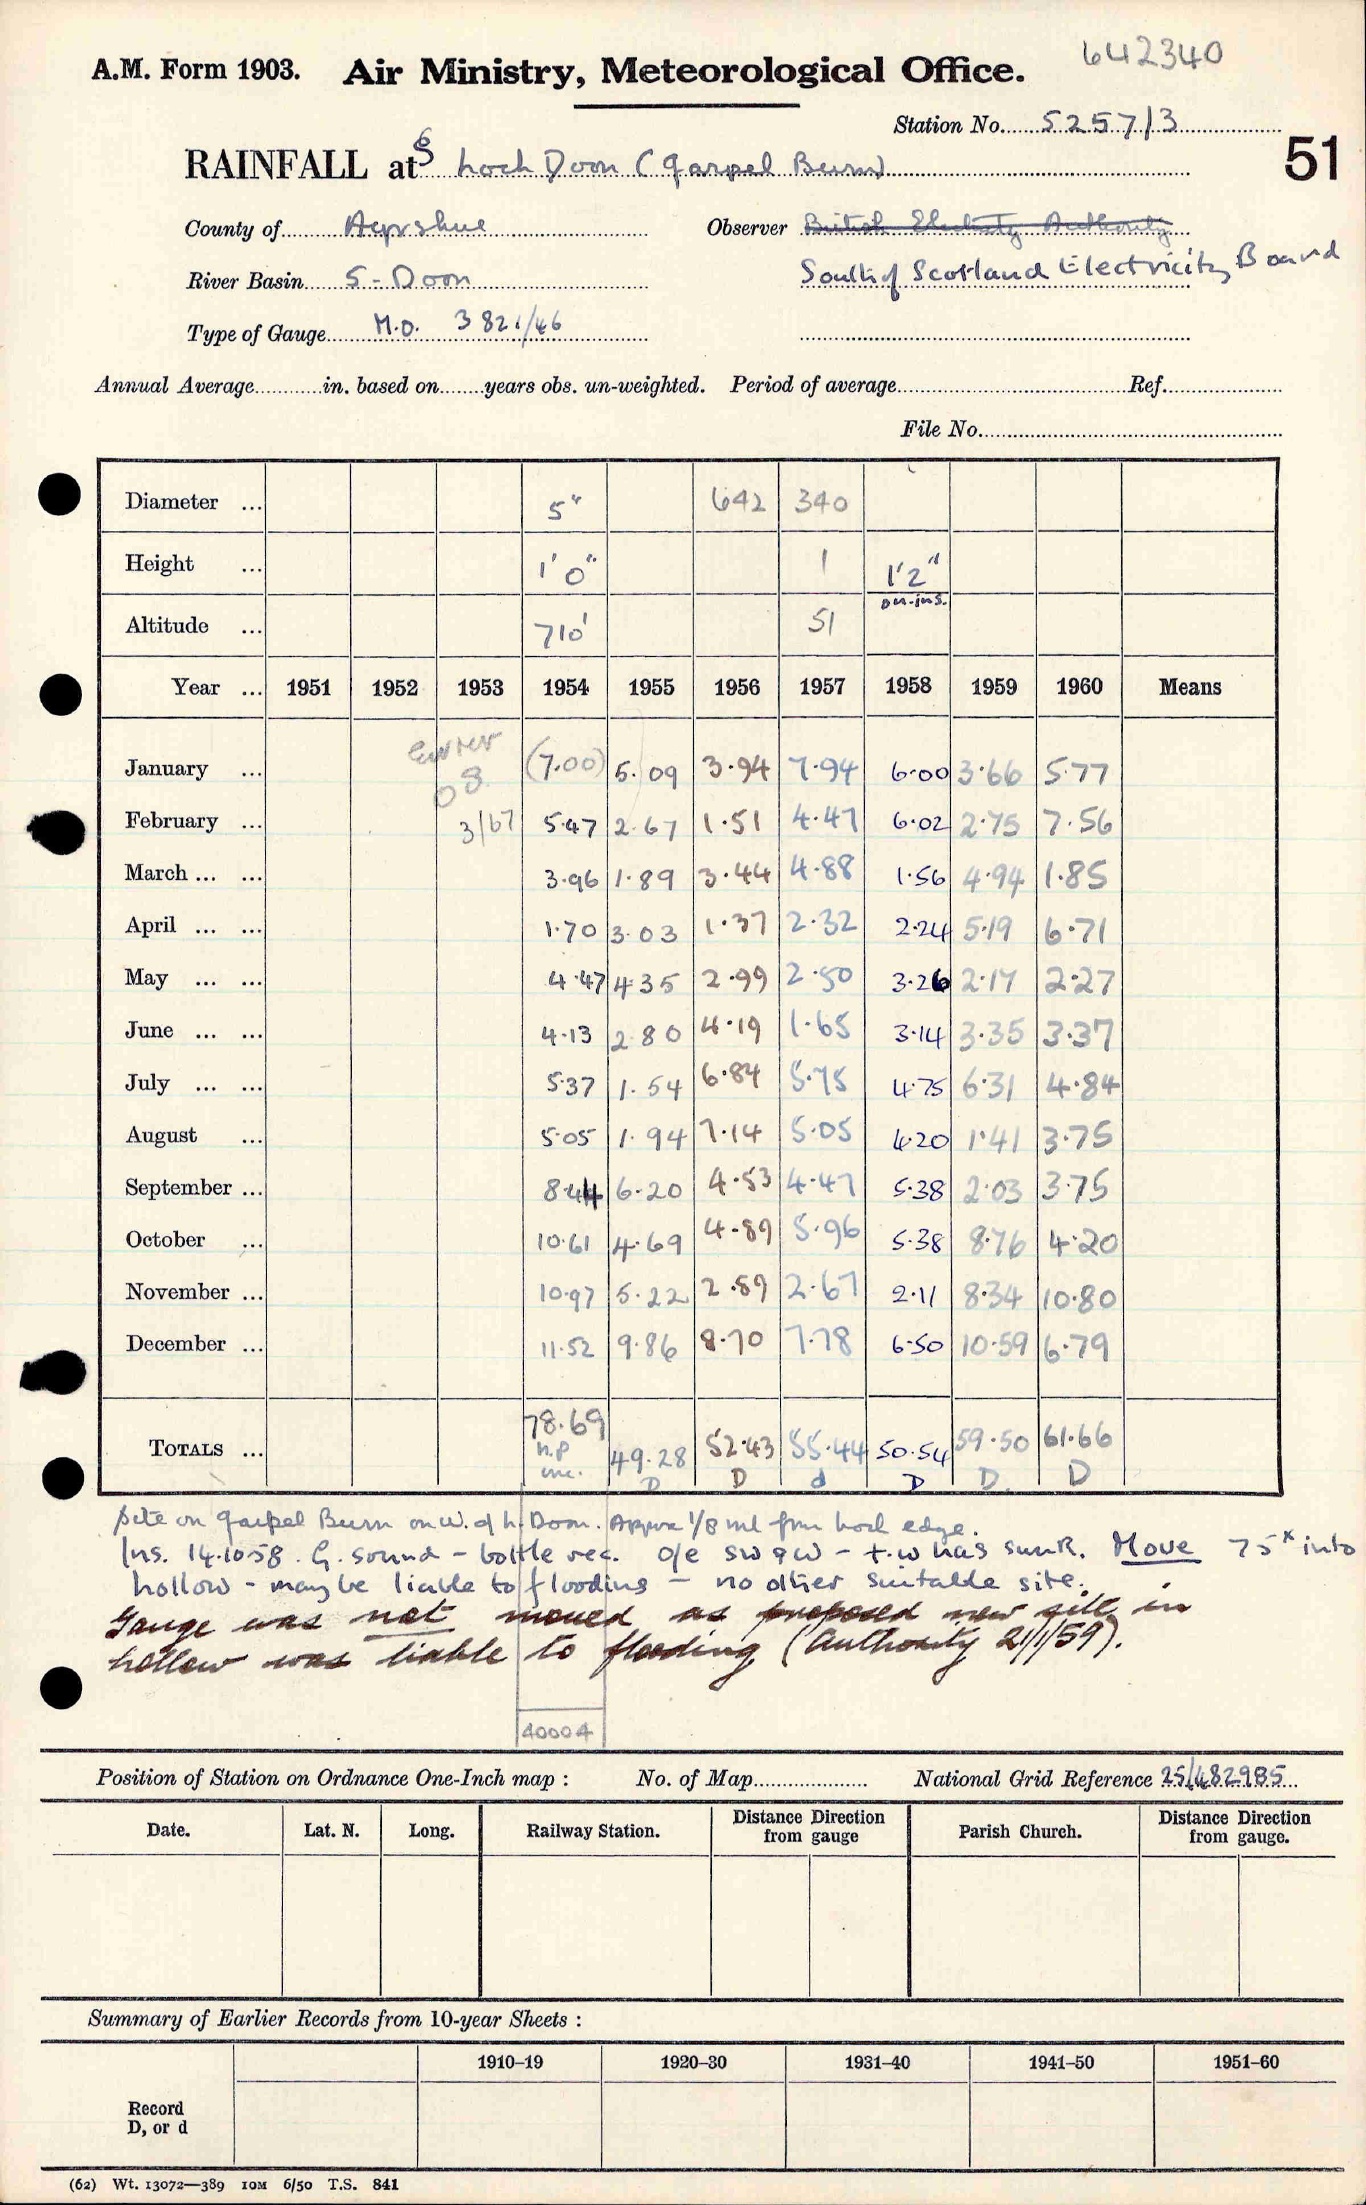 A.M. Form 1903. Air Ministry, Meteorological Office. 642340
Station No. 5257/3
51
RAINFALL at Loch Doon (Garpel Burn)
County of Ayrshire Observer British Electricity Authority
South of Scotland Electricity Board
River Basin 5 - Doon
Type of Gauge M.O. 3821/46
Annual Average in. based on years obs. un-weighted. Period of average Ref.
File No.
Diameter ... 5" 642 340
Height ... 1' 0" 1 1'2"
on-ins.
Altitude ... 710' 51
Year ... 1951 1952 1953 1954 1955 1956 1957 1958 1959 1960 Means
January ... (7.00) 5.09 3.94 7.94 6.00 3.66 5.77
08
February ... 3/67 5.47 2.67 1.51 4.47 6.02 2.75 7.56
March ... ... 3.96 1.89 3.44 4.88 1.56 4.94 1.85
April ... ... 1.70 3.03 1.37 2.32 2.24 5.19 6.71
May ... ... 4.47 4.35 2.99 2.50 3.26 2.17 2.27
June ... ... 4.13 2.80 4.19 1.65 3.14 3.35 3.37
July ... ... 5.37 1.54 6.84 5.75 4.75 6.31 4.84
August ... 5.05 1.94 7.14 5.05 4.20 1.41 3.75
September ... 8.44 6.20 4.53 4.47 5.38 2.03 3.75
October ... 10.61 4.69 4.89 5.96 5.38 8.76 4.20
November ... 10.97 5.22 2.89 2.67 2.11 8.34 10.80
December ... 11.52 9.86 8.70 7.78 6.50 10.59 6.79
TOTALS ... 78.69 49.28 52.43 55.44 50.54 59.50 61.66
n.p inc. D D d D D D
Site on Garpel Burn on W. of L. Doon. Approx 1/8 ml from loch edge.
Ins. 14.10.58. G. sound - bottle rec. o/e SW & W - t.w has sunk. Move 75x into
hollow - may be liable to flooding - no other suitable site.
Gauge was not moved as proposed new site in
hollow was liable to flooding (Authority 21/1/59).
40004
Position of Station on Ordnance One-Inch map : No. of Map National Grid Reference 25/482985
Date. Lat. N. Long. Railway Station. Distance Direction from gauge Parish Church. Distance Direction from gauge.
Summary of Earlier Records from 10-year Sheets :
1910–19 1920–30 1931–40 1941–50 1951–60
Record
D, or d
(62) Wt. 13072—389 10M 6/50 T.S. 841